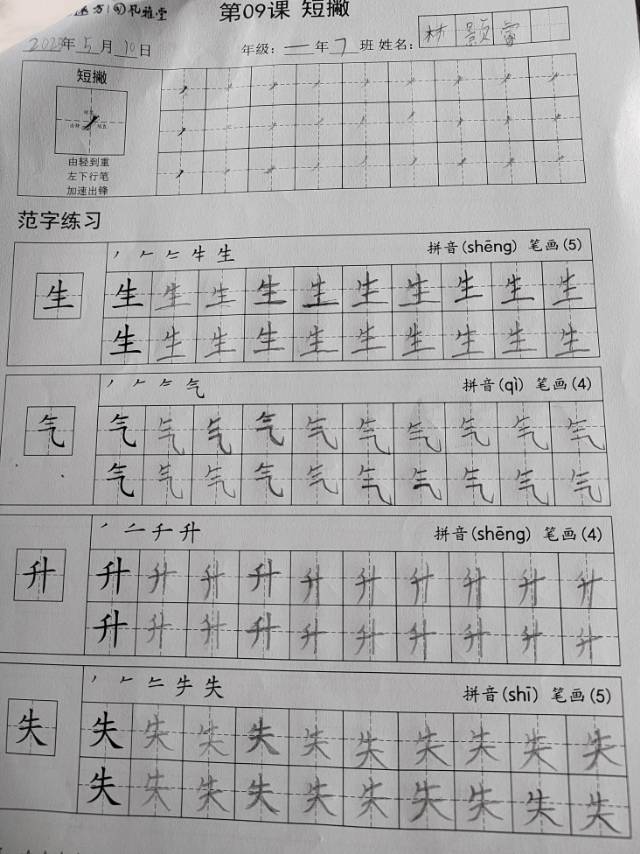 第09课 短撇
2023年5月10日 年级:一年7班 姓名:林颢
短撇
由轻到重
左下行笔
加速出锋
范字练习
生 拼音(shēng) 笔画(5)
生 生 生 生 生 生 生 生 生 生 生
生 生 生 生 生 生 生 生 生 生
气 拼音(qì) 笔画(4)
气 气 气 气 气 气 气 气 气 气 气
气 气 气 气 气 气 气 气 气 气
升 拼音(shēng) 笔画(4)
升 升 升 升 升 升 升 升 升 升 升
升 升 升 升 升 升 升 升 升 升
失 拼音(shī) 笔画(5)
失 失 失 失 失 失 失 失 失 失 失
失 失 失 失 失 失 失 失 失 失